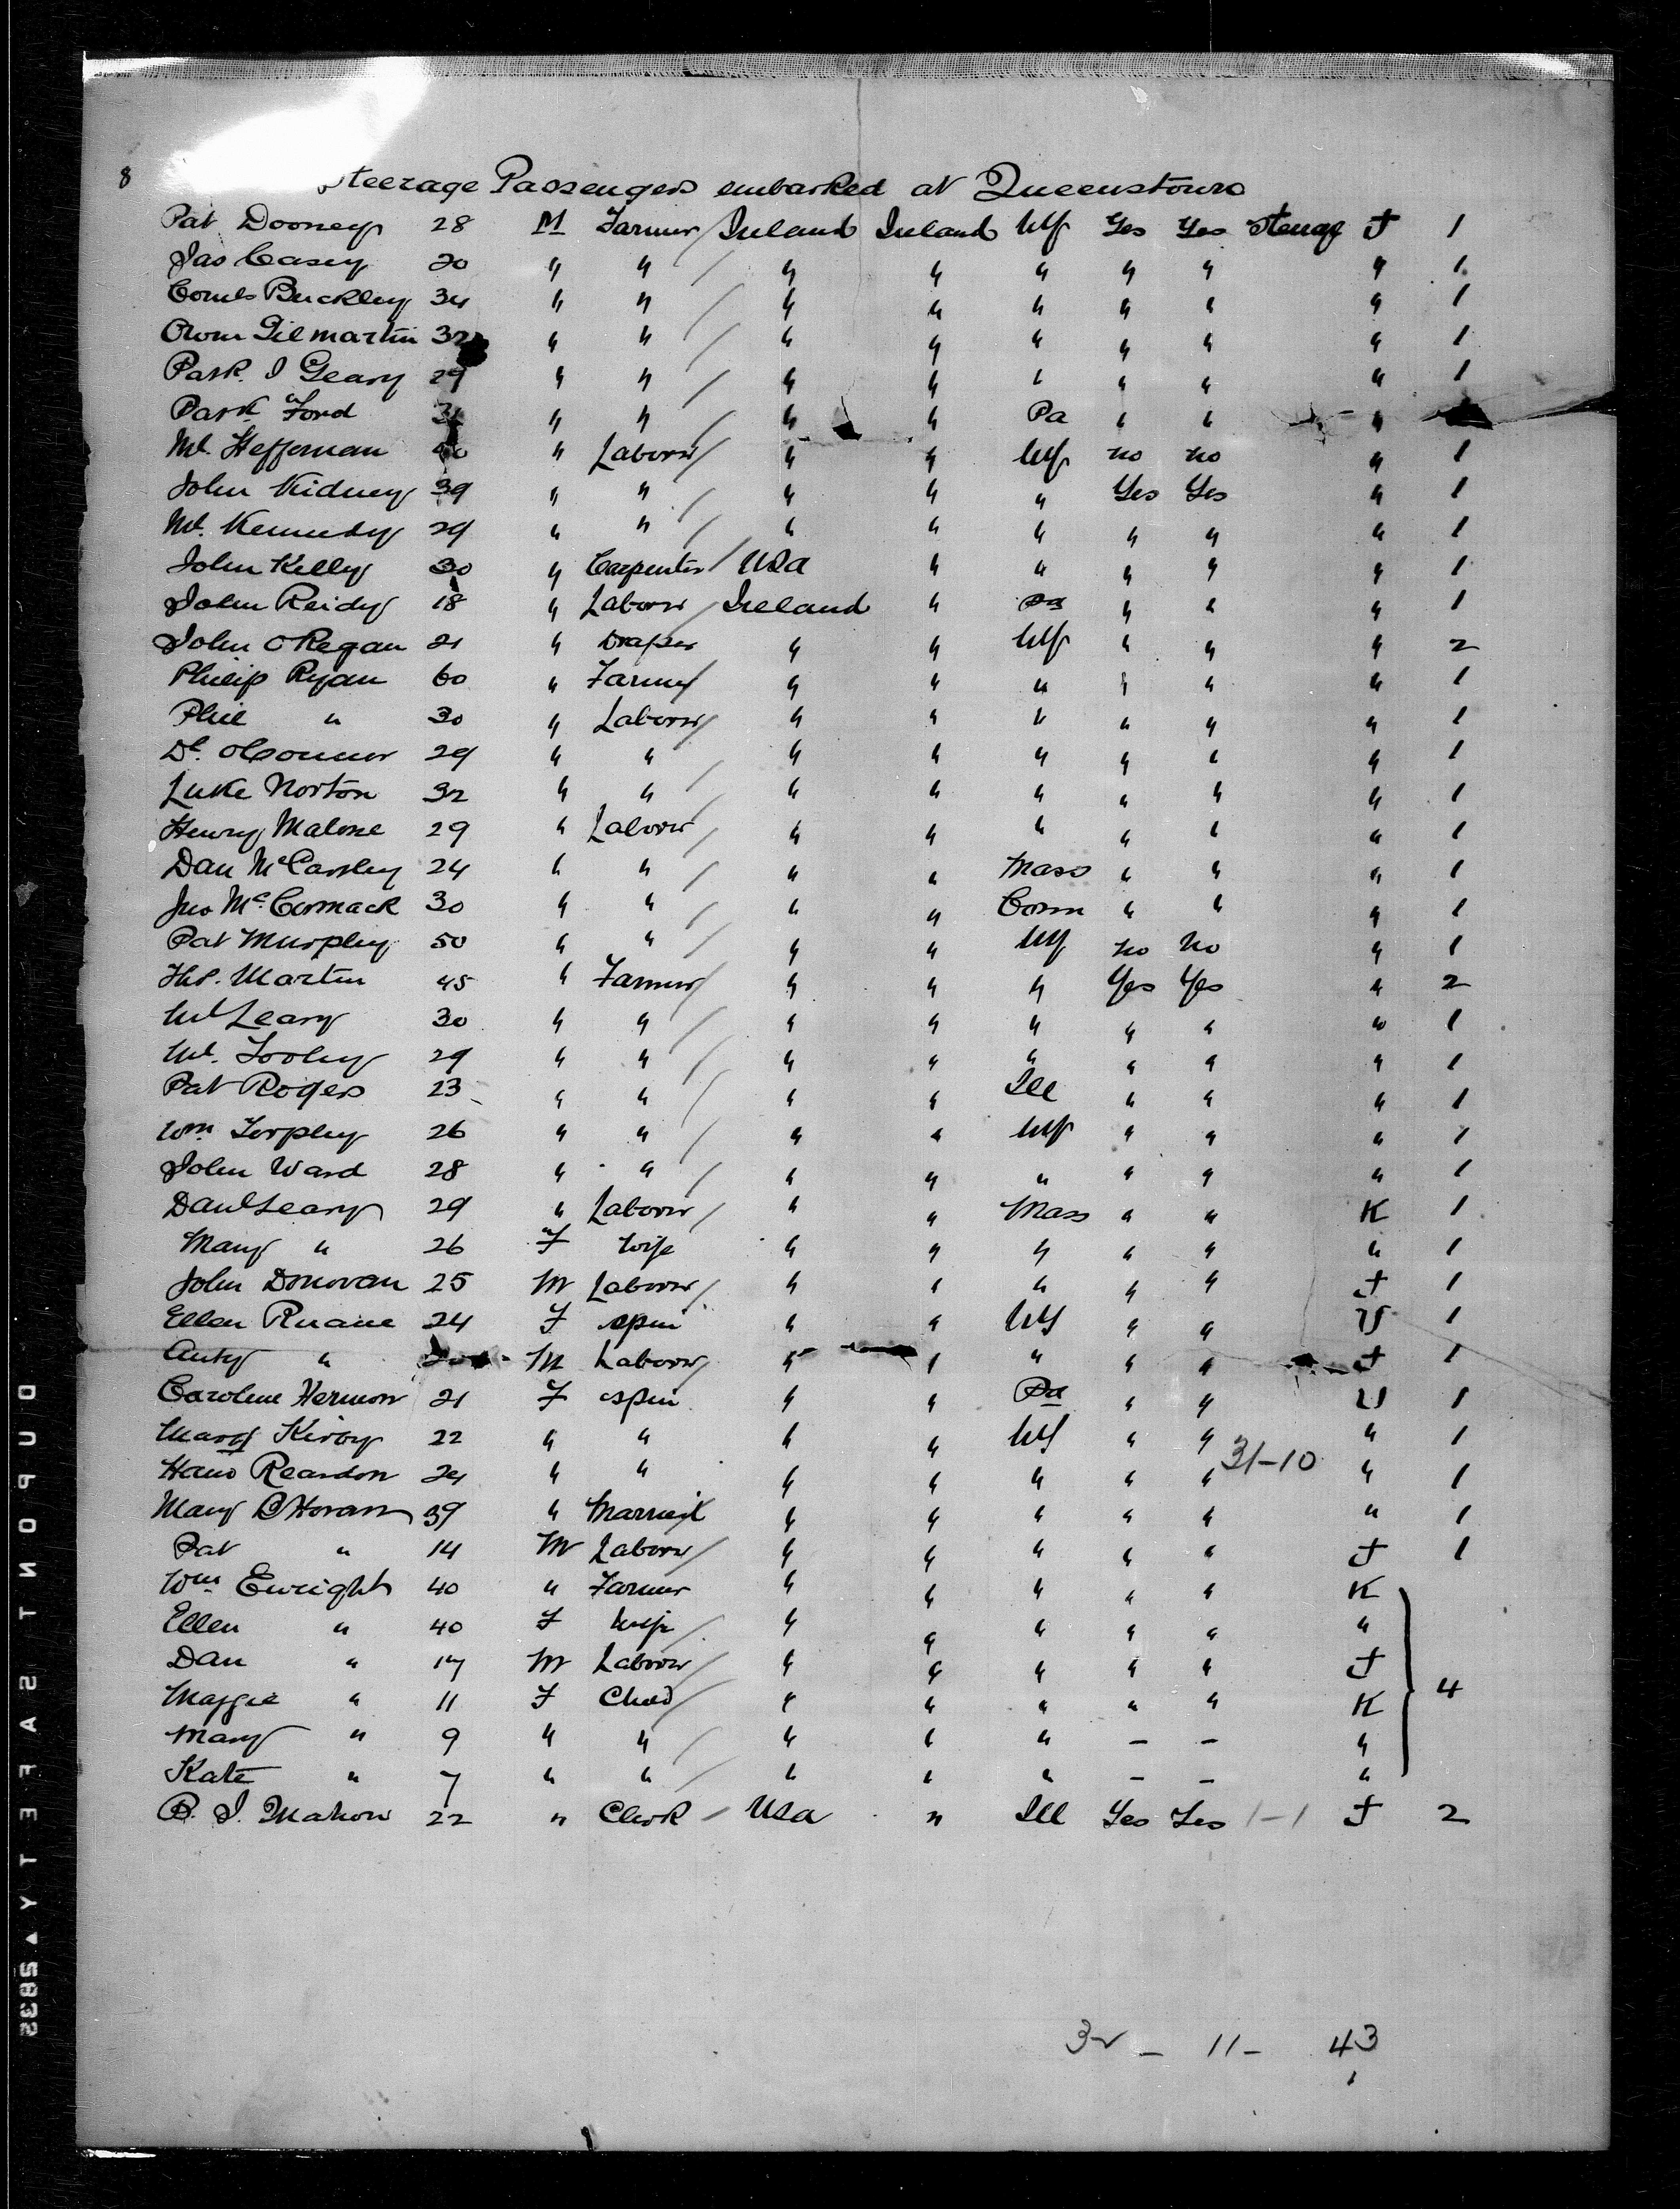 8 Steerage Passengers embarked at Queenstown
Pat Dooney 28 M Farmer / Ireland Ireland NY Yes Yes Steerage J 1
Jas Casey 20 " " / " " " " " " 1
Corns Buckley 34 " " / " " " " " " 1
Owen Gilmartin 32 " " / " " " " " " 1
Patk. J Geary 29 " " / " " " " " " 1
Patk Ford " " / " " Pa " " "
Ml. Heffernan 40 " Laborer / " " NY no no " 1
John Kidney 39 " " / " " " Yes Yes " 1
Ml. Kennedy 29 " " / " " " " " " 1
John Kelly 30 " Carpenter / USA " " " " " 1
John Reidy 18 " Laborer / Ireland " Pa " " " 1
John O Regan 21 " Draper " " NY " " " 2
Philip Ryan 60 " Farmer / " " " " " " 1
Phil " 30 " Laborer / " " " " " " 1
Dl. OConnor 29 " " / " " " " " " 1
Luke Norton 32 " " / " " " " " " 1
Henry Malone 29 " Laborer / " " " " " " 1
Dan McCarthy 24 " " / " " Mass " " " 1
Jno McCormack 30 " " / " " Conn " " " 1
Pat Murphy 50 " " / " " NY no no " 1
Ths. Martin 45 " Farmer / " " " Yes Yes " 2
Ml Leary 30 " " / " " " " " " 1
Ml. Tooley 29 " " / " " " " " " 1
Pat Rogers 23 " " / " " Ill " " " 1
Wm Torpley 26 " " / " " NY " " " 1
John Ward 28 " " / " " " " " " 1
Danl Leary 29 " Laborer / " " Mass " " K 1
Mary " 26 F Wife " " " " " " 1
John Donovan 25 M Laborer / " " " " " J 1
Ellen Ruane 24 F spin " " NY " " U 1
Anty " 20 M Laborer / " " " " " J 1
Caroline Hermon 21 F spin " " Pa " " U 1
Mary Kirby 22 " " " " NY " " " 1
Hano Reardon 24 " " " " " " " 31-10 " 1
Mary O'Horan 39 " Married " " " " " " 1
Pat " 14 M Laborer / " " " " " J 1
Wm Enright 40 " Farmer " " " " " K
Ellen " 40 F Wife / " " " " " "
Dan " 17 M Laborer / " " " " " J
Maggie " 11 F Child / " " " " " K 4
Mary " 9 " " / " " " - - "
Kate " 7 " " / " " " - - "
P. J. Mahon 22 " Clerk / USA " Ill Yes Yes 1-1 J 2
32 - 11 - 43
1
DUPONT SAFETY ▲ 5835